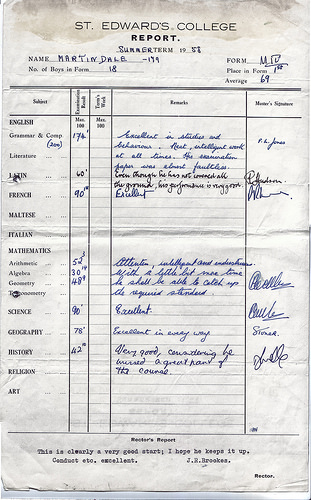 ST. EDWARD'S COLLEGE
REPORT.
SUMMER TERM 1958
NAME MARTIN DALE -199 FORM
No. of Boys in Form 18 Place in Form 1st
Average 69
Subject Examination Result Term's Work Remarks Master's Signature
Max. 100 Max. 100
ENGLISH
Grammar & Comp (200) 174 Excellent in studies and
behaviour. Neat, intelligent work P.L. Jones
Literature at all times. His examination
paper was almost faultless
LATIN 60 Even though he has not covered all
the ground, his performance is very good.
FRENCH 90 Excellent
MALTESE
ITALIAN
MATHEMATICS
Arithmetic 52 Attentive intelligent and industrious.
Algebra 30 With a little bit more time
Geometry 48 he shall be able to catch up
Trigonometry the required standard.
SCIENCE 90 Excellent.
GEOGRAPHY 78 Excellent in every way.
HISTORY 42 Very good, considering he
missed a great part of
RELIGION the course.
ART
Rector's Report
This is clearly a very good start; I hope he keeps it up.
Conduct etc. excellent. J.R.Brookes.
Rector.